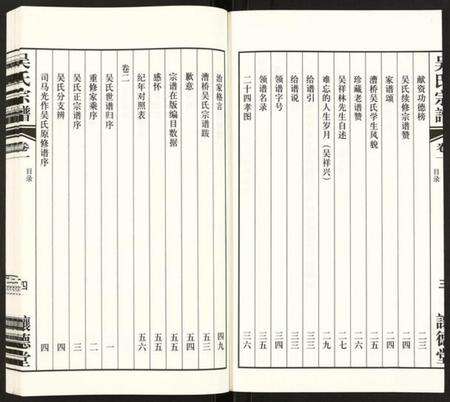 吴氏宗谱 卷一 目录 三 讓德堂
献资功德榜 二三
吴氏续修宗谱赞 二四
家谱颂 二四
漕桥吴氏学生风貌 二五
珍藏老谱赞 二六
吴祥林先生自述 二七
难忘的人生岁月（吴祥兴） 二九
给谱引 三三
给谱说 三三
领谱字号 三五
领谱名录 三五
二十四孝图 三六
治家格言 四九
漕桥吴氏宗谱跋 五三
歉意 五四
宗谱在版编目数据 五五
感怀 五五
纪年对照表 五六
卷二
吴氏世谱归序 一
重修家乘序 二
吴氏正宗谱序 三
吴氏分支辨 四
司马光作吴氏原修谱序 四
吴氏宗谱 卷一 目录 四 讓德堂